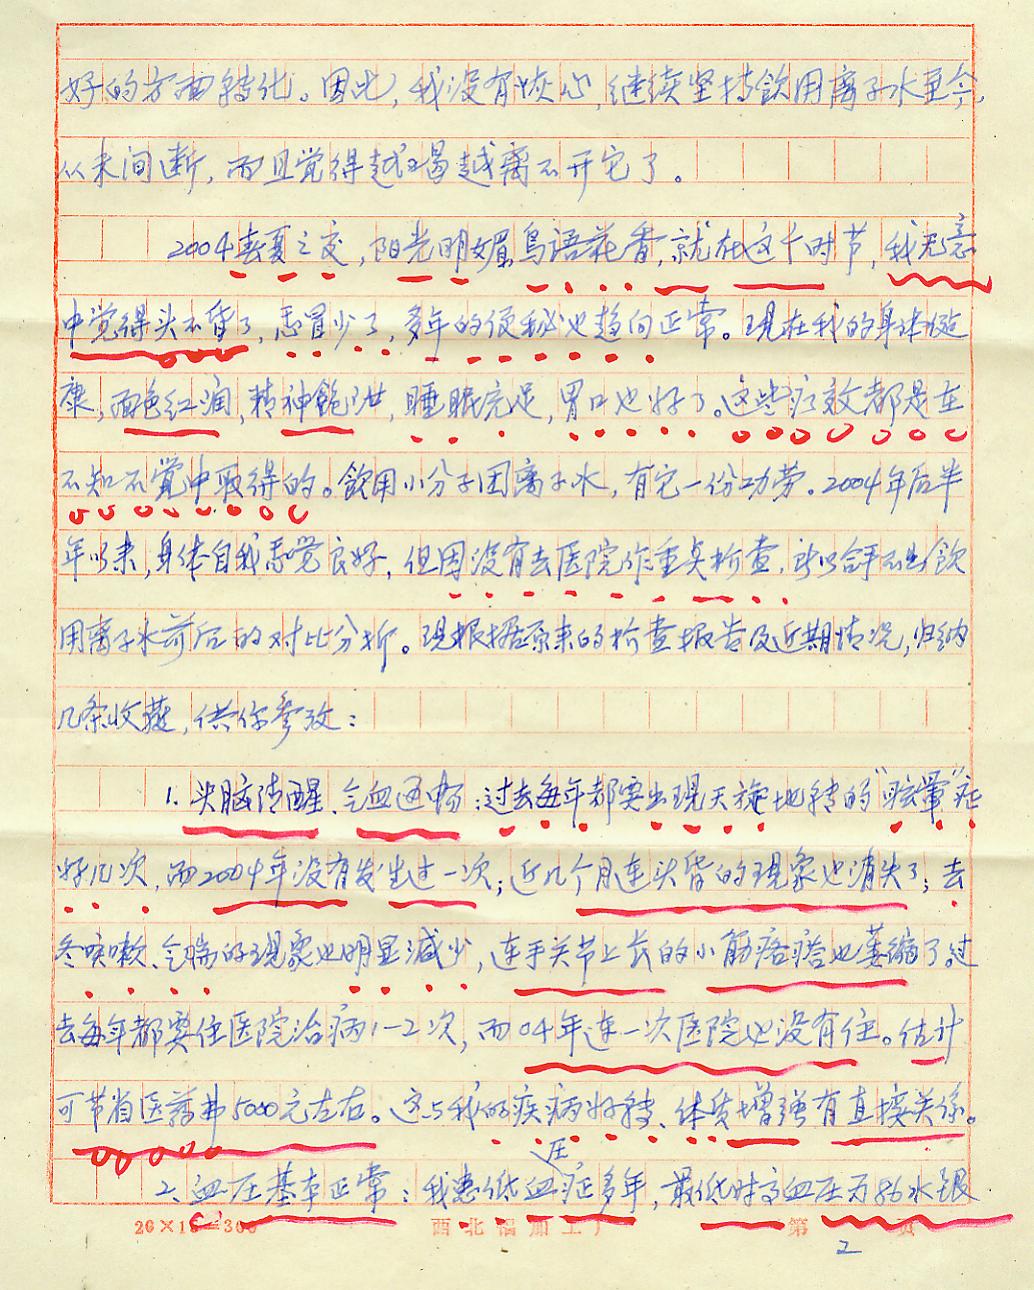 好的方面转化。因此,我没有灰心,继续坚持飲用离子水至今,
从未间断,而且觉得越喝越离不开它了。
2004春夏之交,阳光明媚,鸟语花香,就在这个时节,我无意
中觉得头不昏了,感冒少了,多年的便秘也趋向正常。现在我的身体健
康,面色红润,精神饱满,睡眠充足,胃口也好了。这些疗效都是在
不知不觉中取得的。飲用小分子团离子水,有它一份功劳。2004年后半
年以来,身体自我感觉良好,但因没有去医院作重点检查,所以合乎不出飲
用离子水前后的对比分析。现根据原来的检查报告及近期情况,归纳
几条收获,供你参攷:
1.头脑清醒、气血通畅:过去每年都要出现天旋地转的"眩晕"症
好几次,而2004年没有发生过一次;近几个月连头昏的现象也消失了;去
冬咳嗽、气喘的现象也明显减少,连手关节上长的小筋疙瘩也萎缩了。过
去每年都要住医院治病1-2次,而04年连一次医院也没有住。估计
可节省医药弗5000元左右。这与我的疾病好转、体质增强有直接关係。
2、血压基本正常:我患低血压症多年,最低时高血压为86水银
20×15=300
第2页